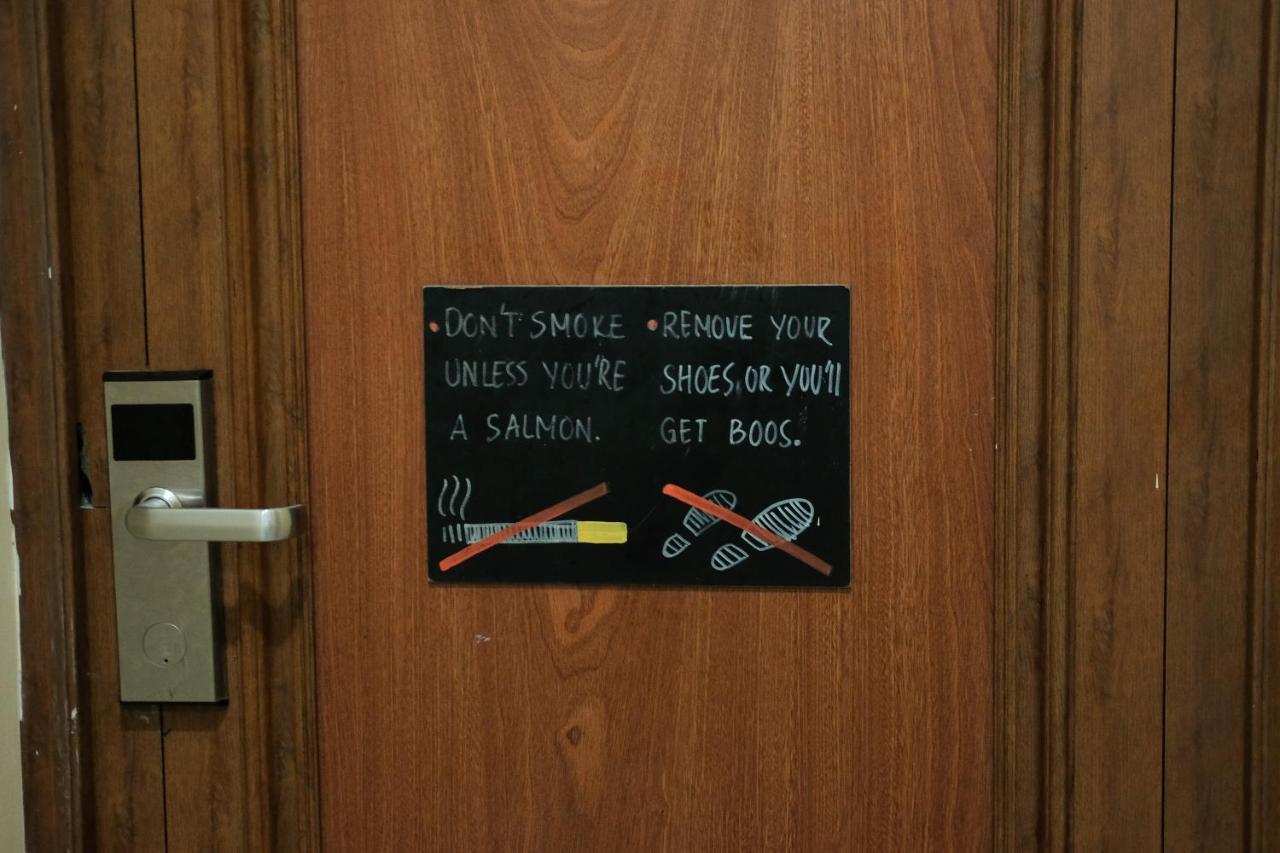 DON'T SMOKE
UNLESS YOU'RE
A SALMON.
REMOVE YOUR
SHOES, OR YOU'll
GET BOOS.